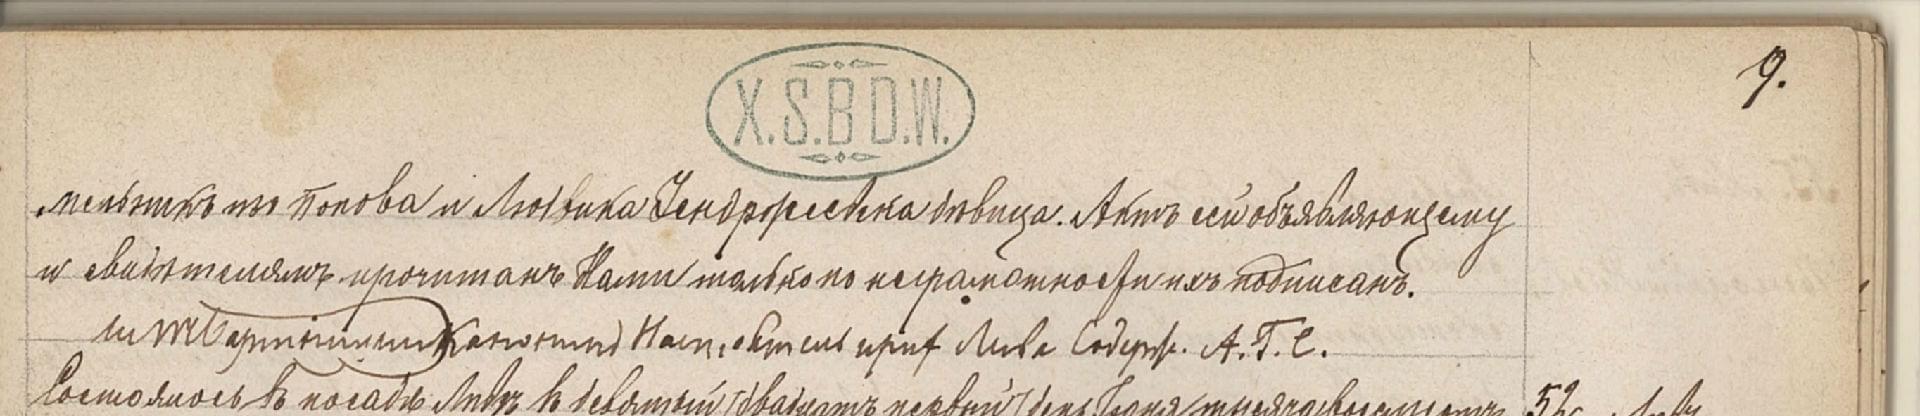 9.
X.S.B D.W.
мельникъ изъ Попова и Людвика Ендржеевска дѣвица. Актъ сей объявляющему
и свидѣтелямъ прочитанъ Нами только по неграмотности ихъ подписанъ.
Настоятель приход Содерж. А.Г.С.
Состоялось въ посадѣ въ девятый /двадцать первый/ день тысяча восемьсотъ
52.